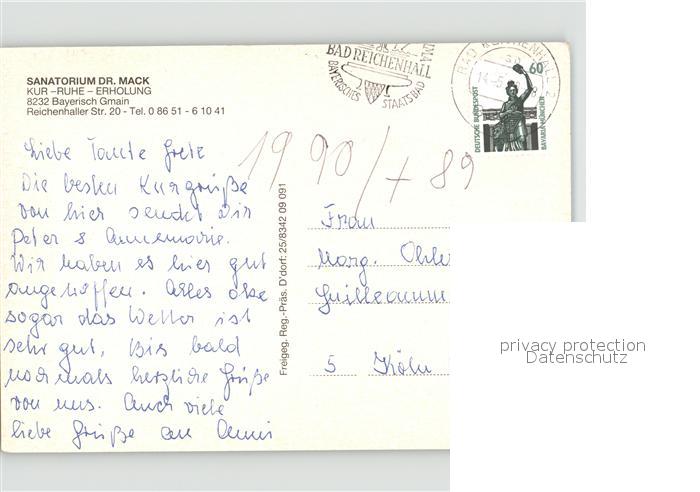 SANATORIUM DR. MACK
KUR –RUHE – ERHOLUNG
8232 Bayerisch Gmain
Reichenhaller Str. 20 - Tel. 0 86 51 - 6 10 41
BAD REICHENHALL
BAYERISCHES STAATSBAD
BAD REICHENHALL 2
60
DEUTSCHE BUNDESPOST
BAVARIA MÜNCHEN
1990/+ 89
Liebe Tante Grete
Die besten Kurgrüße
von hier sendet Dir
Peter & Annemarie.
Wir haben es hier gut
angetroffen. Alles okc
sogar das Wetter ist
sehr gut, Bis bald
nochmals herzliche Grüße
von uns. Auch viele
liebe Grüße an
Freigeg. Reg.-Präs. D'dorf: 25/8342 09 091
Frau
Marg.
5 Köln
privacy protection
Datenschutz